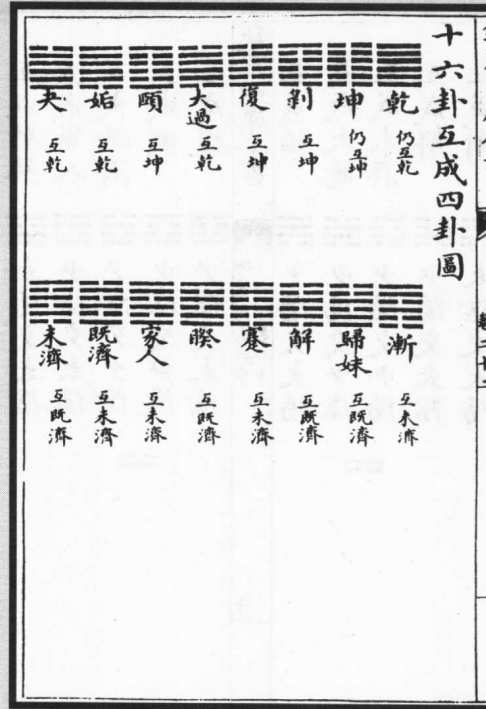 十六卦互成四卦圖
乾 仍互乾
坤 仍互坤
剝 互坤
復 互坤
大過 互乾
頤 互坤
姤 互乾
夬 互乾
漸 互未濟
歸妹 互既濟
解 互既濟
蹇 互未濟
睽 互既濟
家人 互未濟
既濟 互未濟
未濟 互既濟